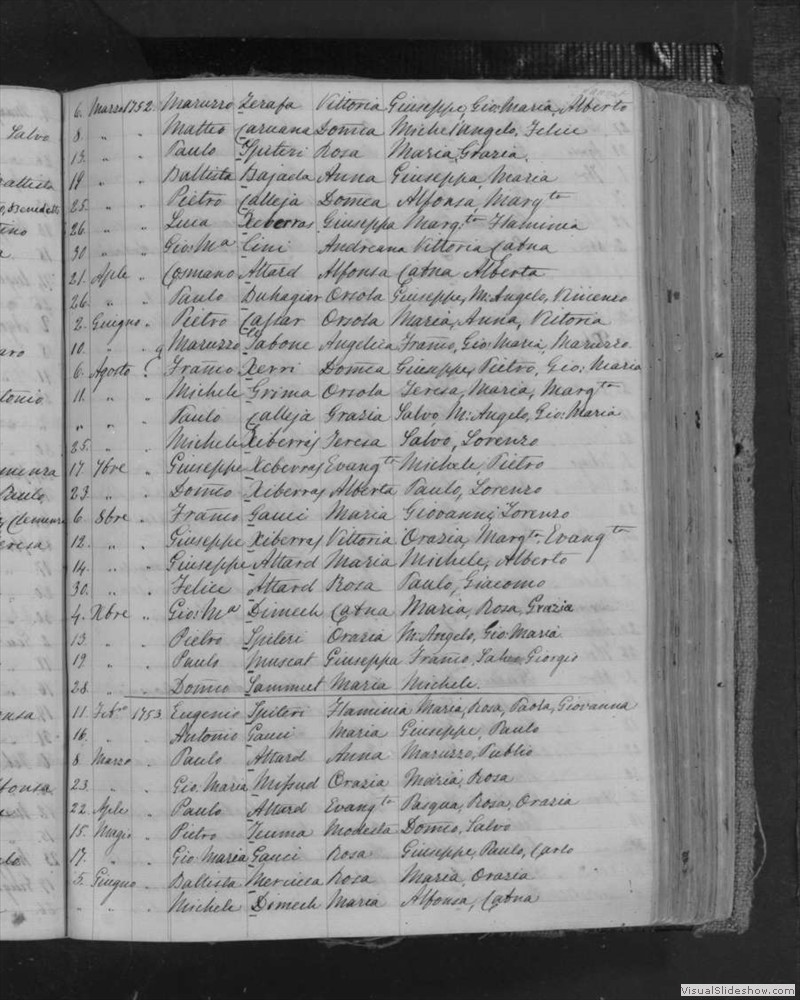 Salvo
Battista
Benedetto
tino
a
aro
tonio
menza
Paulo
Clemenza
eresa
ensa
lfonsa
6. Marzo 1752. Maruzzo Zerafa Vittoria Giuseppe, Gio: Maria, Alberto
8 " " Matteo Caruana Domca Michel'Angelo, Felice
13. " " Paulo Spiteri Rosa Maria, Grazia,
19 " " Battista Bajada Anna Giuseppa, Maria
25. " " Pietro Calleja Domca Alfonsa, Margta
26. " " Luca Xiberras Giuseppa Marg:ta Flaminia
30 " " Gio: Ma Cini Andreana Vittoria Catna
21. Aple " Cosmano Attard Alfonsa Catna Alberta
26. " " Paulo Buhagiar Orsola Giuseppe, M: Angelo, Vincenzo
2. Giugno " Pietro Cassar Orsola Maria, Anna, Vittoria
10. " " Maruzzo Sabone Angelica Franco, Gio: Maria, Maruzzo
6. Agosto ? Franco Xerri Domca Giuseppe, Pietro, Gio: Maria
11. " " Michele Grima Orsola Teresa, Maria, Margta
" " " Paulo Calleja Grazia Salvo, M: Angelo, Gio: Maria
25. " " Michele Xiberras Teresa Salvo, Lorenzo
17 7bre " Giuseppe Xiberras Evangta Michele, Pietro
23 " " Domco Xiberras Alberta Paulo, Lorenzo
6. 8bre " Franco Gauci Maria Giovanni, Lorenzo
12. " " Giuseppe Xiberras Vittoria Orazia, Margta, Evangta
14. " " Giuseppe Attard Maria Michele, Alberto
30. " " Felice Attard Rosa Paulo, Giacomo
4. Xbre " Gio: Ma Dimech Catna Maria, Rosa, Grazia
13. " " Pietro Spiteri Orazia M: Angelo, Gio: Maria
19 " " Paulo Muscat Giuseppa Franco, Salvo, Giorgio
28. " " Domco Sammut Maria Michele.
11. Febro 1753. Eugenio Spiteri Flaminia Maria, Rosa, Paola, Giovanna
16. " " Antonio Gauci Maria Giuseppe, Paulo
8. Marzo " Paulo Attard Anna Maruzzo, Publio
23. " " Gio: Maria Mifsud Orazia Maria, Rosa
22. Aple " Paulo Attard Evangta Pasqua, Rosa, Orazia
15. Magio " Pietro Zuma Modesta Domco, Salvo
17. " " Gio Maria Gauci Rosa Giuseppe, Paulo, Carlo
5. Giugno " Battista Mercieca Rosa Maria, Orazia
" " " Michele Dimech Maria Alfonsa, Catna
VisualSlideshow.com